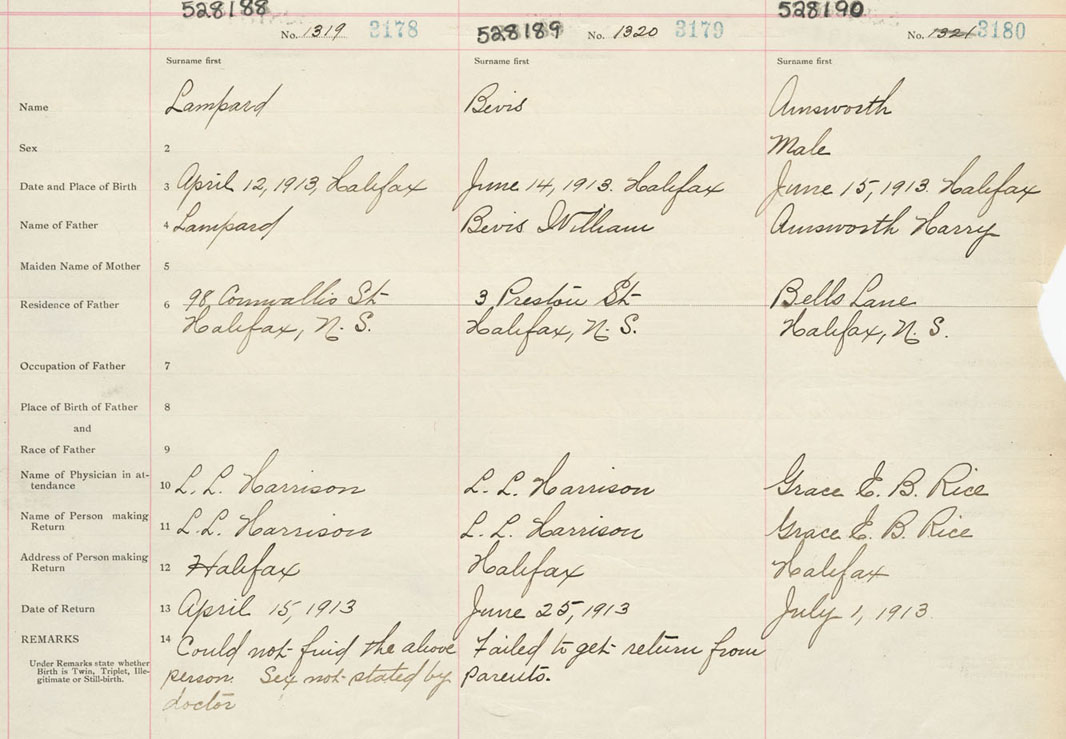 528188
528189
528190
No. 1319 3178
No. 1320 3179
No. 1321 3180
Surname first
Surname first
Surname first
Name
Lampard
Bevis
Ainsworth
Sex
2
Male
Date and Place of Birth
3 April 12, 1913, Halifax
June 14, 1913. Halifax
June 15, 1913. Halifax
Name of Father
4 Lampard
Bevis William
Ainsworth Harry
Maiden Name of Mother
5
Residence of Father
6 98 Cornwallis St
Halifax, N. S.
3 Preston St
Halifax, N. S.
Bells Lane
Halifax, N. S.
Occupation of Father
7
Place of Birth of Father
8
and
Race of Father
9
Name of Physician in at-
tendance
10 L. L. Harrison
L. L. Harrison
Grace E. B. Rice
Name of Person making
Return
11 L. L. Harrison
L. L. Harrison
Grace E. B. Rice
Address of Person making
Return
12 Halifax
Halifax
Halifax
Date of Return
13 April 15, 1913
June 25, 1913
July 1, 1913
REMARKS
Under Remarks state whether
Birth is Twin, Triplet, Ille-
gitimate or Still-birth.
14 Could not find the above
person. Sex not stated by
doctor
Failed to get return from
parents.